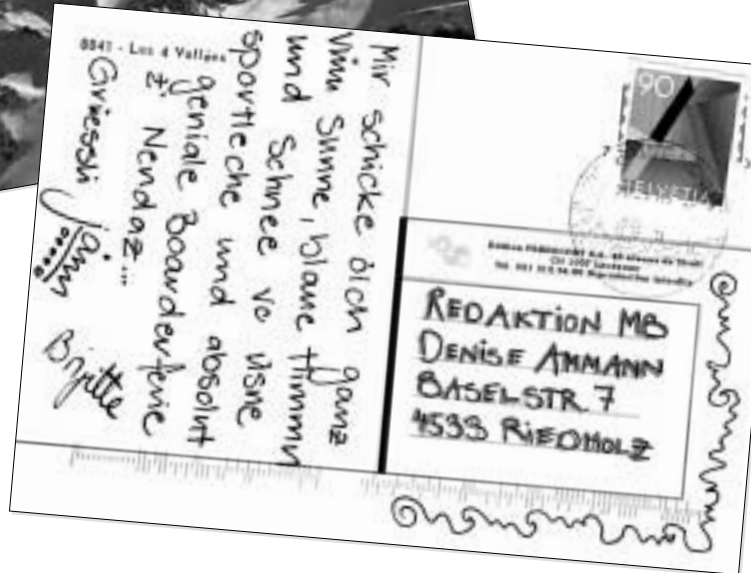 8841 - Les 4 Vallées
Mir schicke öich ganz
viuu Sunne, blaue Himmu
und Schnee vo üsne
sportleche und absolut
geniale Boarderferie
z. Nendaz...
Griessli Jänu
Brigitte
90
HELVETIA
REDAKTION MB
DENISE AMMANN
BASELSTR. 7
4533 RIEDHOLZ